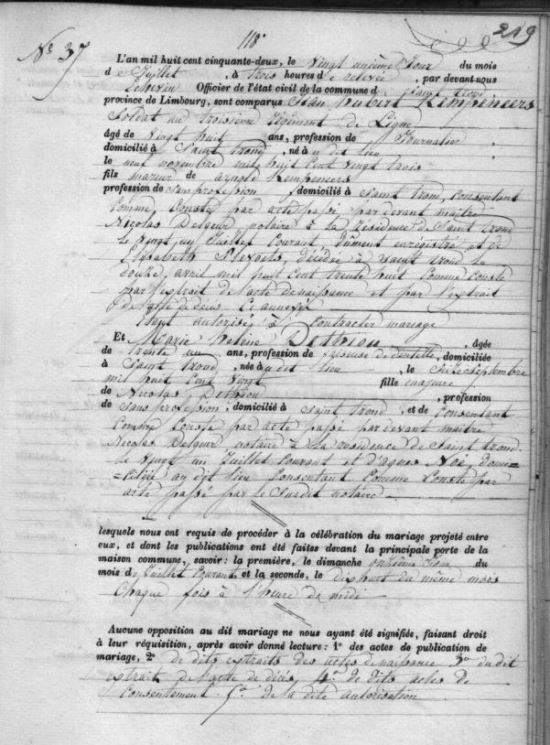 118
219
Nº 37
L'an mil huit cent cinquante-deux, le vingt unième jour du mois
de Juillet, à trois heures de relevée, par devant nous
Officier de l'état civil de la commune de Saint Trond
province de Limbourg, sont comparus Jean Hubert Kempeneers
Soldat au troisième régiment de Ligne
âgé de vingt huit ans, profession de Journalier
domicilié à Saint Trond, né à u dit lieu
le neuf novembre mil huit cent vingt trois
fils majeur de Arnold Kempeneers
profession de sans profession, domicilié à Saint trond, consentant
comme conste par acte passé par devant maître
Nicolas Delgeur notaire à la résidence de Saint Trond
le vingt un Juillet courant, dûment enregistré et de
Elisabeth décédée à Saint trond le
douze avril mil huit cent trente huit comme conste
par l'extrait de l'acte de naissance et par l'extrait
de l'acte de décès ci annexés
étant autorisé à contracter mariage
Et Marie Hélène Dethiou, âgée
de trente un ans, profession de faiseuse de dentelle, domiciliée
à Saint trond, née à u dit lieu, le six septembre
mil huit cent vingt fille majeure
de Nicolas Dethiou, profession
de sans profession, domicilié à Saint trond, et de consentant
comme conste par acte passé par devant maître
Nicolas Delgeur notaire à la résidence de Saint trond
le vingt un Juillet courant et d'agnes Noé domi=
=ciliée au dit lieu consentant comme conste par
acte passé par le susdit notaire
lesquels nous ont requis de procéder à la célébration du mariage projeté entre
eux, et dont les publications ont été faites devant la principale porte de la
maison commune, savoir: la première, le dimanche onzième jour du
mois de Juillet courant et la seconde, le dixhuit du même mois
chaque fois à l'heure de midi
Aucune opposition au dit mariage ne nous ayant été signifiée, faisant droit
à leur réquisition, après avoir donné lecture: 1º des actes de publication de
mariage, 2º de dits extraits des actes de naissance 3º du dit
extrait de l'acte de décès, 4º de dits actes de
consentement. 5º de la dite autorisation